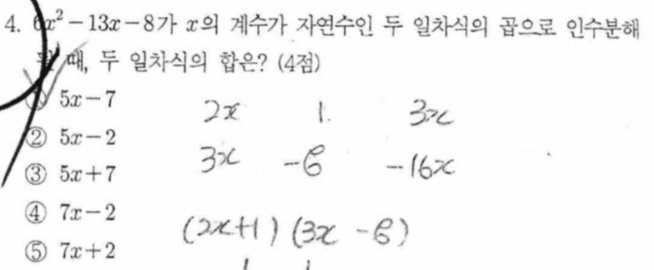 4. 6x² − 13x − 8가 x의 계수가 자연수인 두 일차식의 곱으로 인수분해
때, 두 일차식의 합은? (4점)
① 5x − 7
② 5x − 2
③ 5x + 7
④ 7x − 2
⑤ 7x + 2
2x 1. 3x
3x -8 -16x
(2x+1) (3x -8)